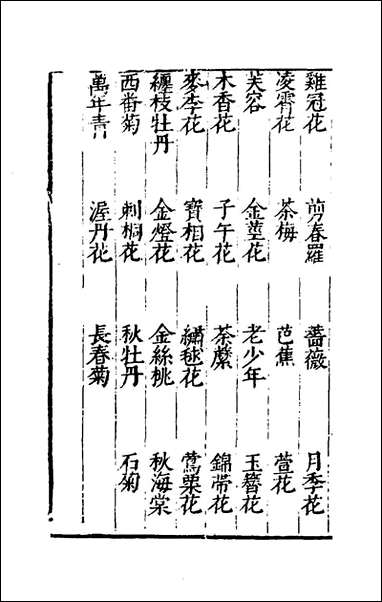 雞冠花 剪春羅 薔薇 月季花
凌霄花 茶梅 芭蕉 萱花
芙容 金莖花 老少年 玉簪花
木香花 子午花 荼蘪 錦帶花
麥李花 寶相花 繡毬花 鶯粟花
纏枝牡丹 金燈花 金絲桃 秋海棠
西番菊 刺桐花 秋牡丹 石菊
萬年青 渥丹花 長春菊